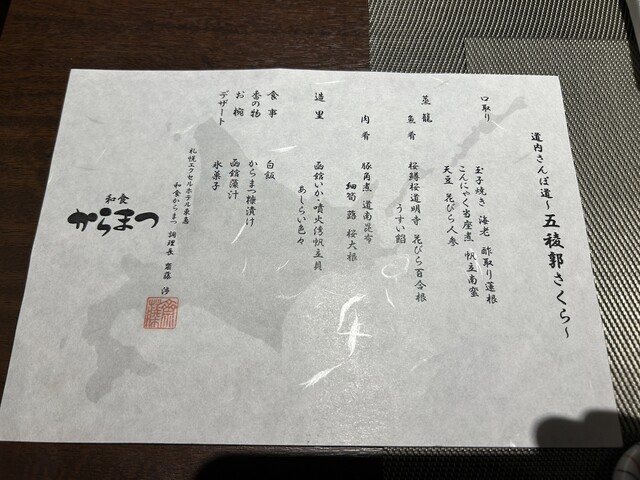 道内さんぽ道～五稜郭さくら～
口取り　玉子焼き　海老　酢取り蓮根
こんにゃく当座煮　帆立南蛮
天豆　花びら人参
蒸籠
魚肴　桜鱒桜道明寺　花びら百合根
うすい餡
肉肴　豚角煮　道南昆布
細筍　蕗　桜大根
造里　函館いか・噴火湾帆立貝
あしらい色々
食事　白飯
香の物　からまつ糠漬け
お椀　函館藻汁
デザート　氷菓子
札幌エクセルホテル東急
和食からまつ　調理長　齋藤　渉
和食
からまつ